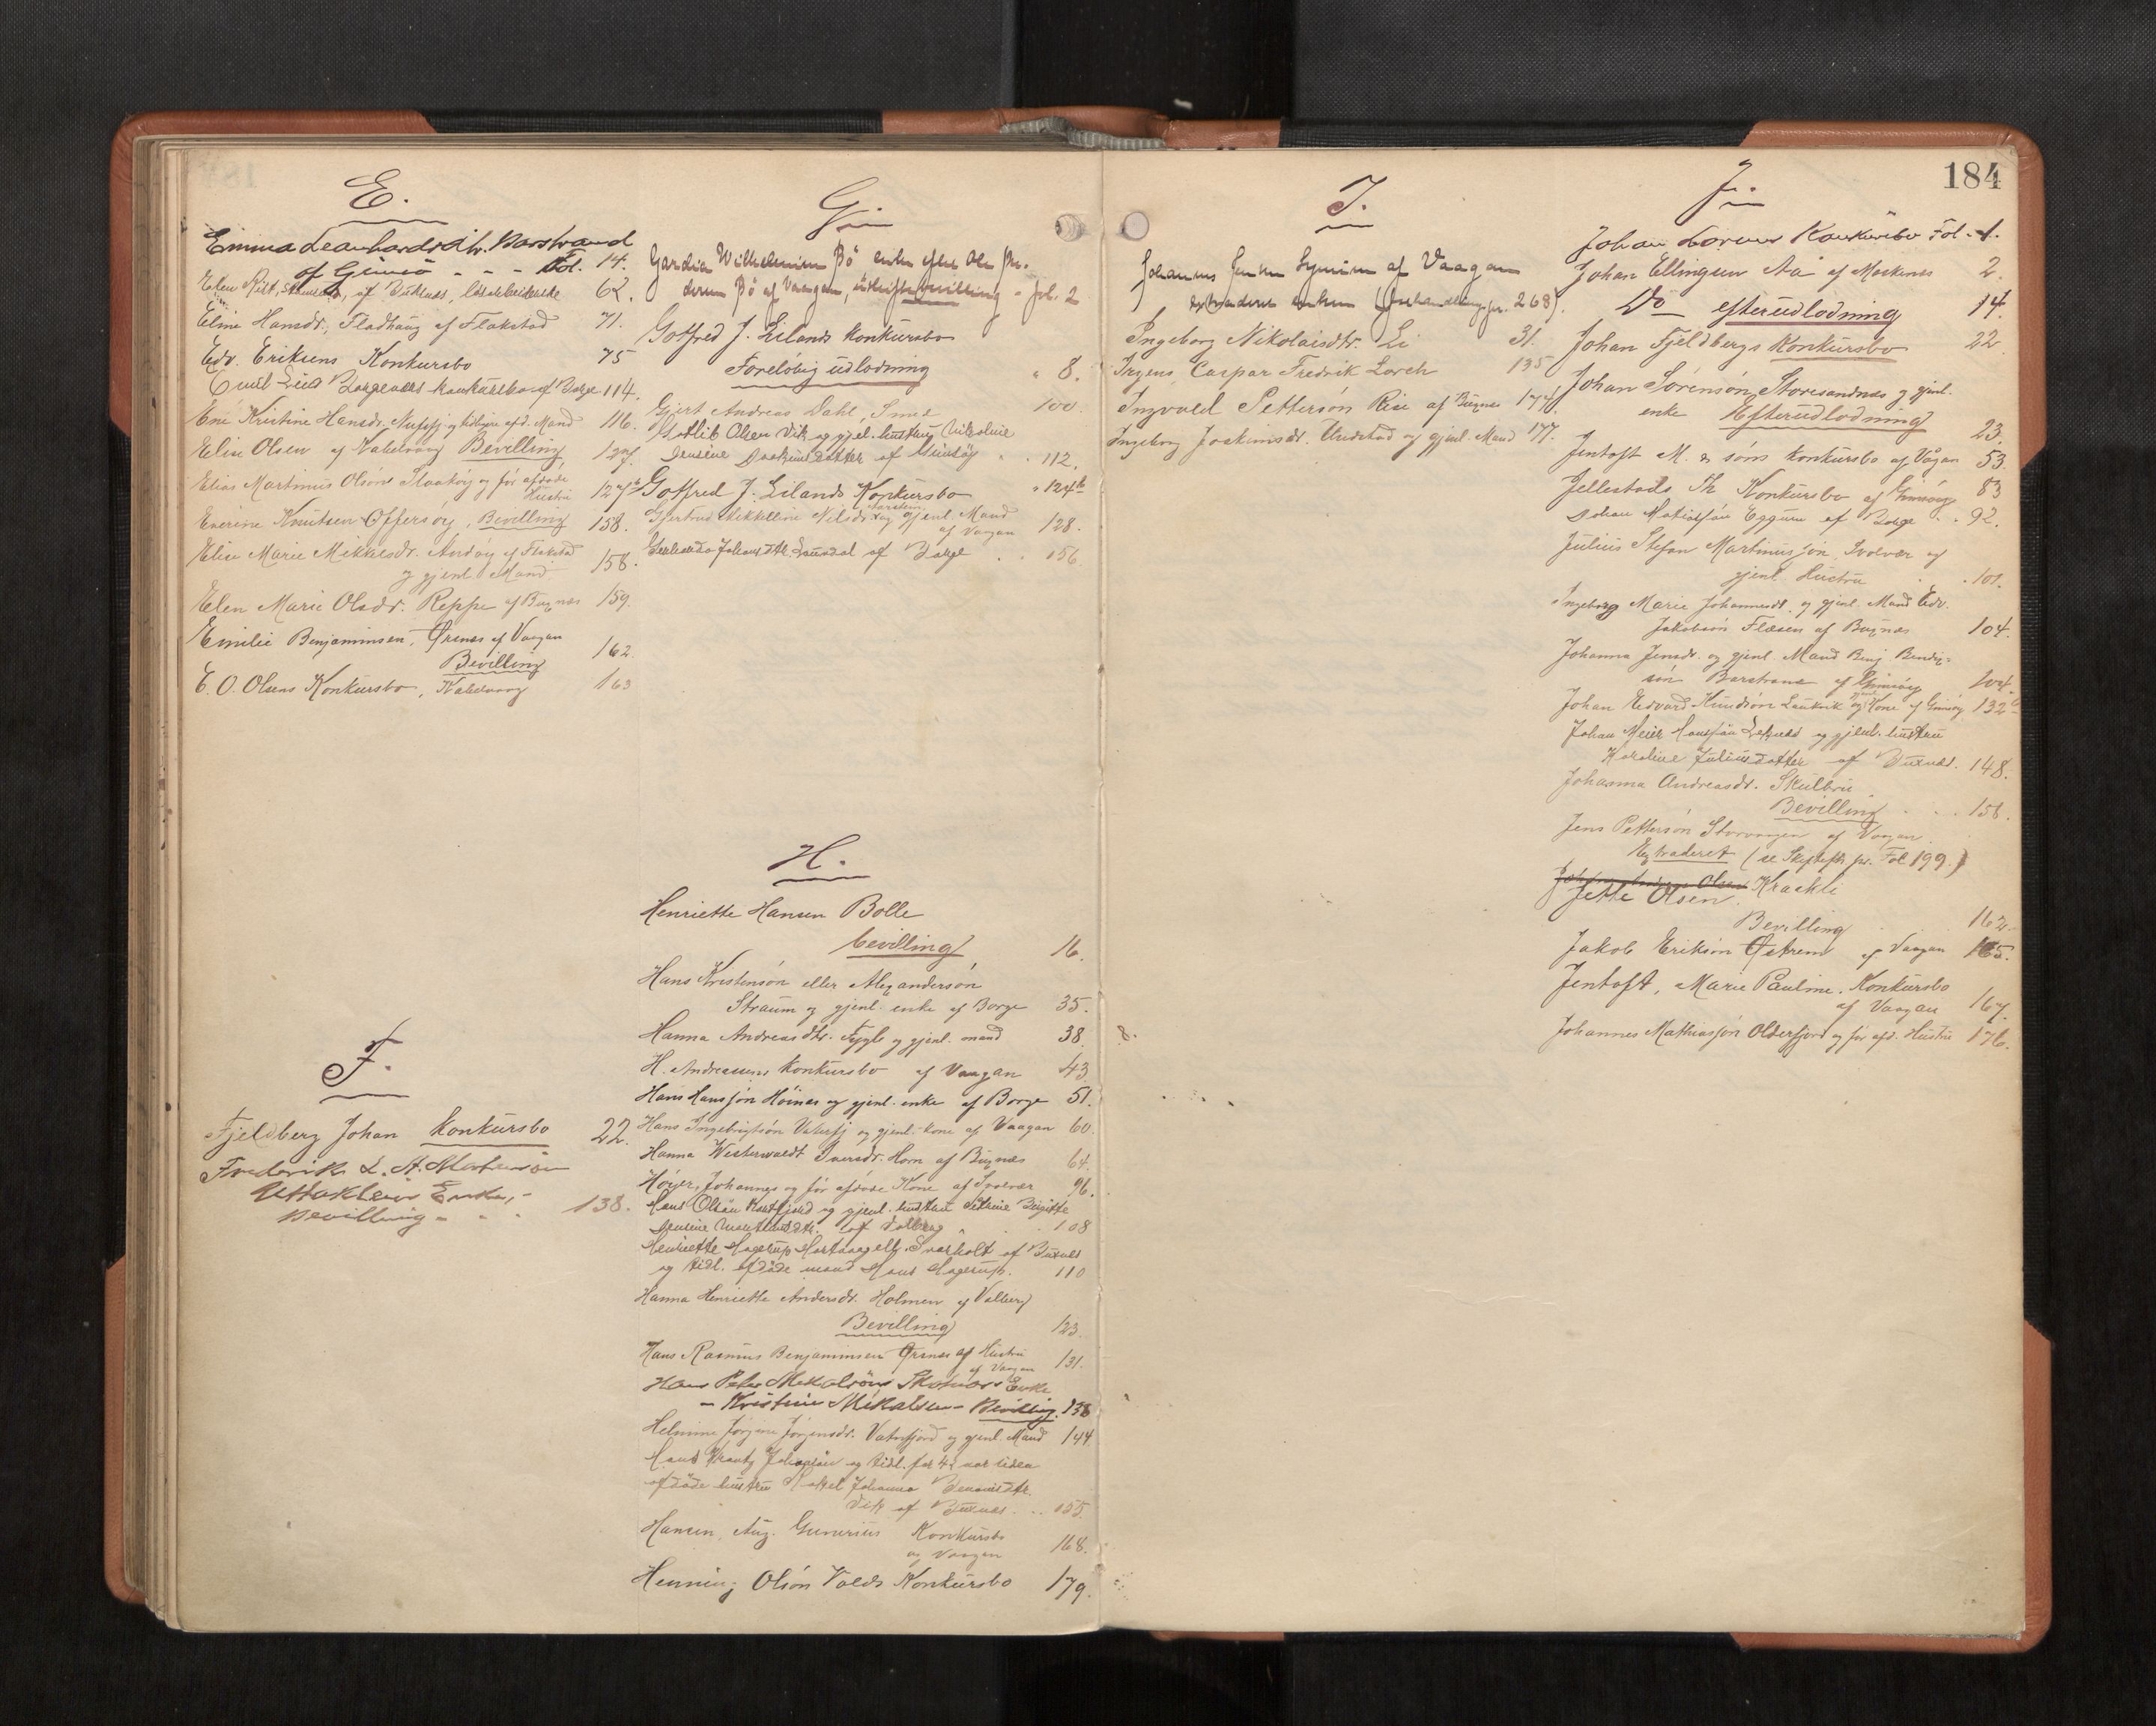 184
E.
Emma Leonhardsdtr. Barstrand
af Gimsö - - - Fol. 14.
Elen Rist, Stamsund, af Buksnes, 62.
Eline Hansdr., Fladhaug af Flakstad 71.
Edv. Eriksens Konkursbo 75
Emil Lund Borgevers konkursbo af Borge 114.
Ene Kristine Hansdr. Nusfj. og afd. Mand 116.
Elise Olsen af Kabelvaag Bevilling 127.
Elias Martinus Olsön og før afdøde
Hustru 127b
Everine Knutsen Offersøy, Bevilling 158.
Elise Marie Mikkelsdr. Andøy af Flakstad
og gjenl. Mand 158.
Elen Marie Olsdr. Reppe af Buxnæs 159.
Emilie Benjaminsen, Ørsnes af Vaagan
Bevilling 162.
E. O. Olsens Konkursbo, Kabelvaag 163
F.
Fjeldberg Johan Konkursbo 22.
Frederik L. A. Mortensön
Uttakleiv Enke, -
Bevilling - - - 138.
G.
Gardia Wilhelmine Bö enke efter Ole
Bö af Vaagan, uskiftebevilling - fol. 2
Gotfred J. Eilands Konkursbo
Foreløbig udlodning " 8.
Gjert Andreas Dahl, Smed 100.
Gotlib Olsen Vik og gjel. hustru Nikoline
Jensine Joakimsdatter af Gimsöy . . 112.
Gotfred J. Eilands Konkursbo " 124b
Gjertrud Mikkeline Nilsdr. og gjenl. Mand
af Vaagan 128.
Johansdtr. Lauvdal af Borge . . 156.
H.
Henriette Hansen Bolle
bevilling 16.
Hans Kristensön eller Alexandersön
Straum og gjenl. enke af Borge 35.
Hanna Andreasdtr. Fygle og gjenl. mand 38.
H. Andreassens Konkursbo af Vaagan 43
Hans Hansjön Höines og gjenl. enke af Borge 51.
Hans Ingebrigtsön Vaterfj og gjenl. kone af Vaagan 60.
Hanna Westerwaldt Iversdr. Horn af Buxnæs 64.
Høyer, Johannes og før afdøde Kone af Svolvær 96.
Hans Olsön Kartfjord og gjenl. hustru Petrine Birgitte
Jensine af Valberg . . 108
Henriette Hagerup Hartvaag elly. Sværholt af Buxnes
og tidl. afdøde mand Hans Hagerup. 110
Hanna Henriette Andersdr. Holmen af Valberg
Bevilling 123.
Hans Rasmus Benjaminsen Ørsnes af Hustru
af Vaagan 131.
Hans Peter Mikalsöns Enke
- Kristine Mikalsen - Bevilling. 138
Helmine Jørgine Jørgensdr. Vatnfjord og gjenl. Mand 144.
Hans Krantz Johansön og tidl. for 4 aar siden
afdøde hustru Rakel Johanna
Vik af Buxnæs . . . 155.
Hansen, Aug. Gunerius Konkursbo
af Vaagan 168.
Henning Olsön Volds Konkursbo 179.
I.
Johannes Jensen af Vaagan
extraderet enken (forhandlingspr. 268).
Ingeborg Nikolaisdtr. Li 31.
Irgens, Caspar Fredrik Lorch 135
Ingvald Pettersön Rise af Buxnes 174.
Ingeborg Joakimsdr. Unstad og gjenl. Mand 177.
J.
Johan Lorens Konkursbo Fol. 1.
Johan Ellingsen Aa af Moskenes 2.
Do efterudlodning 14.
Johan Fjeldbergs Konkursbo 22.
Johan Sörensön Storesandnes og gjenl.
enke Efterudlodning 23.
Jentoft M. & söns konkursbo af Vågan 53.
Jellestads Th Konkursbo af Gimsöy 83
Johan Matiasjön Eggum af Borge . . 92.
Julius Stefan Martinusjön Svolvær og
gjenl. Hustru . . 101.
Ingeborg Marie Johannesdt. og gjenl. Mand Edv.
Jakobsön Flæsen af Buxnæs 104.
Johanna Jensdr. og gjenl. Mand Benj. Bendix-
sön Barstrand af Gimsöy 104.
Johan Edvard Knudsön Laukvik og Kone af Gimsöy 132b
Johan Meier Hansjön Leknes og gjenl. hustru
Karoline Juliusdatter af Buxnæs. 148.
Johanna Andreasdr. Skulbru
Bevilling . . . 158.
Jens Pettersön Storvaagen af Vaagan
Extraderet (se Skiftefh. pr. Fol 199.)
Jette Olsen. Kræmkli
Bevilling . 162.
Jakob Eriksön Østrem af Vaagan 165.
Jentoft, Marie Pauline. Konkursbo
af Vaagan 167.
Johannes Mathiasjön Olderfjord og før afd. Hustru 176.